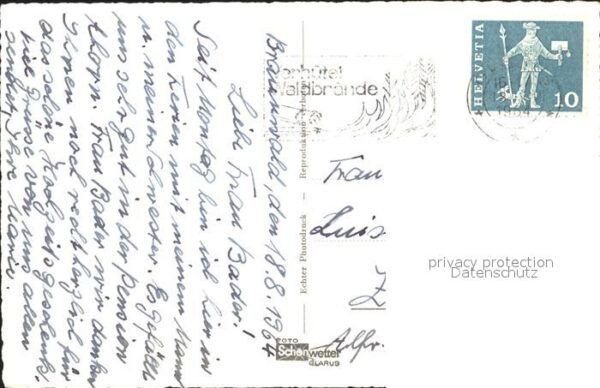 Braunwald, den 18.8.1964
Liebe Frau Bader!
Seit Montag bin ich hier in
den Ferien mit meinem Mann
u. meiner Schwester. Es gefällt
uns sehr gut in der Pension
Ahorn. Frau Bader wir danken
Ihnen noch recht herzlich für
das schöne Hochzeitsgeschenk.
Viele Grüsse von uns allen
Ihre
Echter Photodruck — Reproduktion
FOTO
Schönwetter
GLARUS
Waldbrände
1964
HELVETIA
10
Frau
Luis
Z
Alfr.
privacy protection
Datenschutz